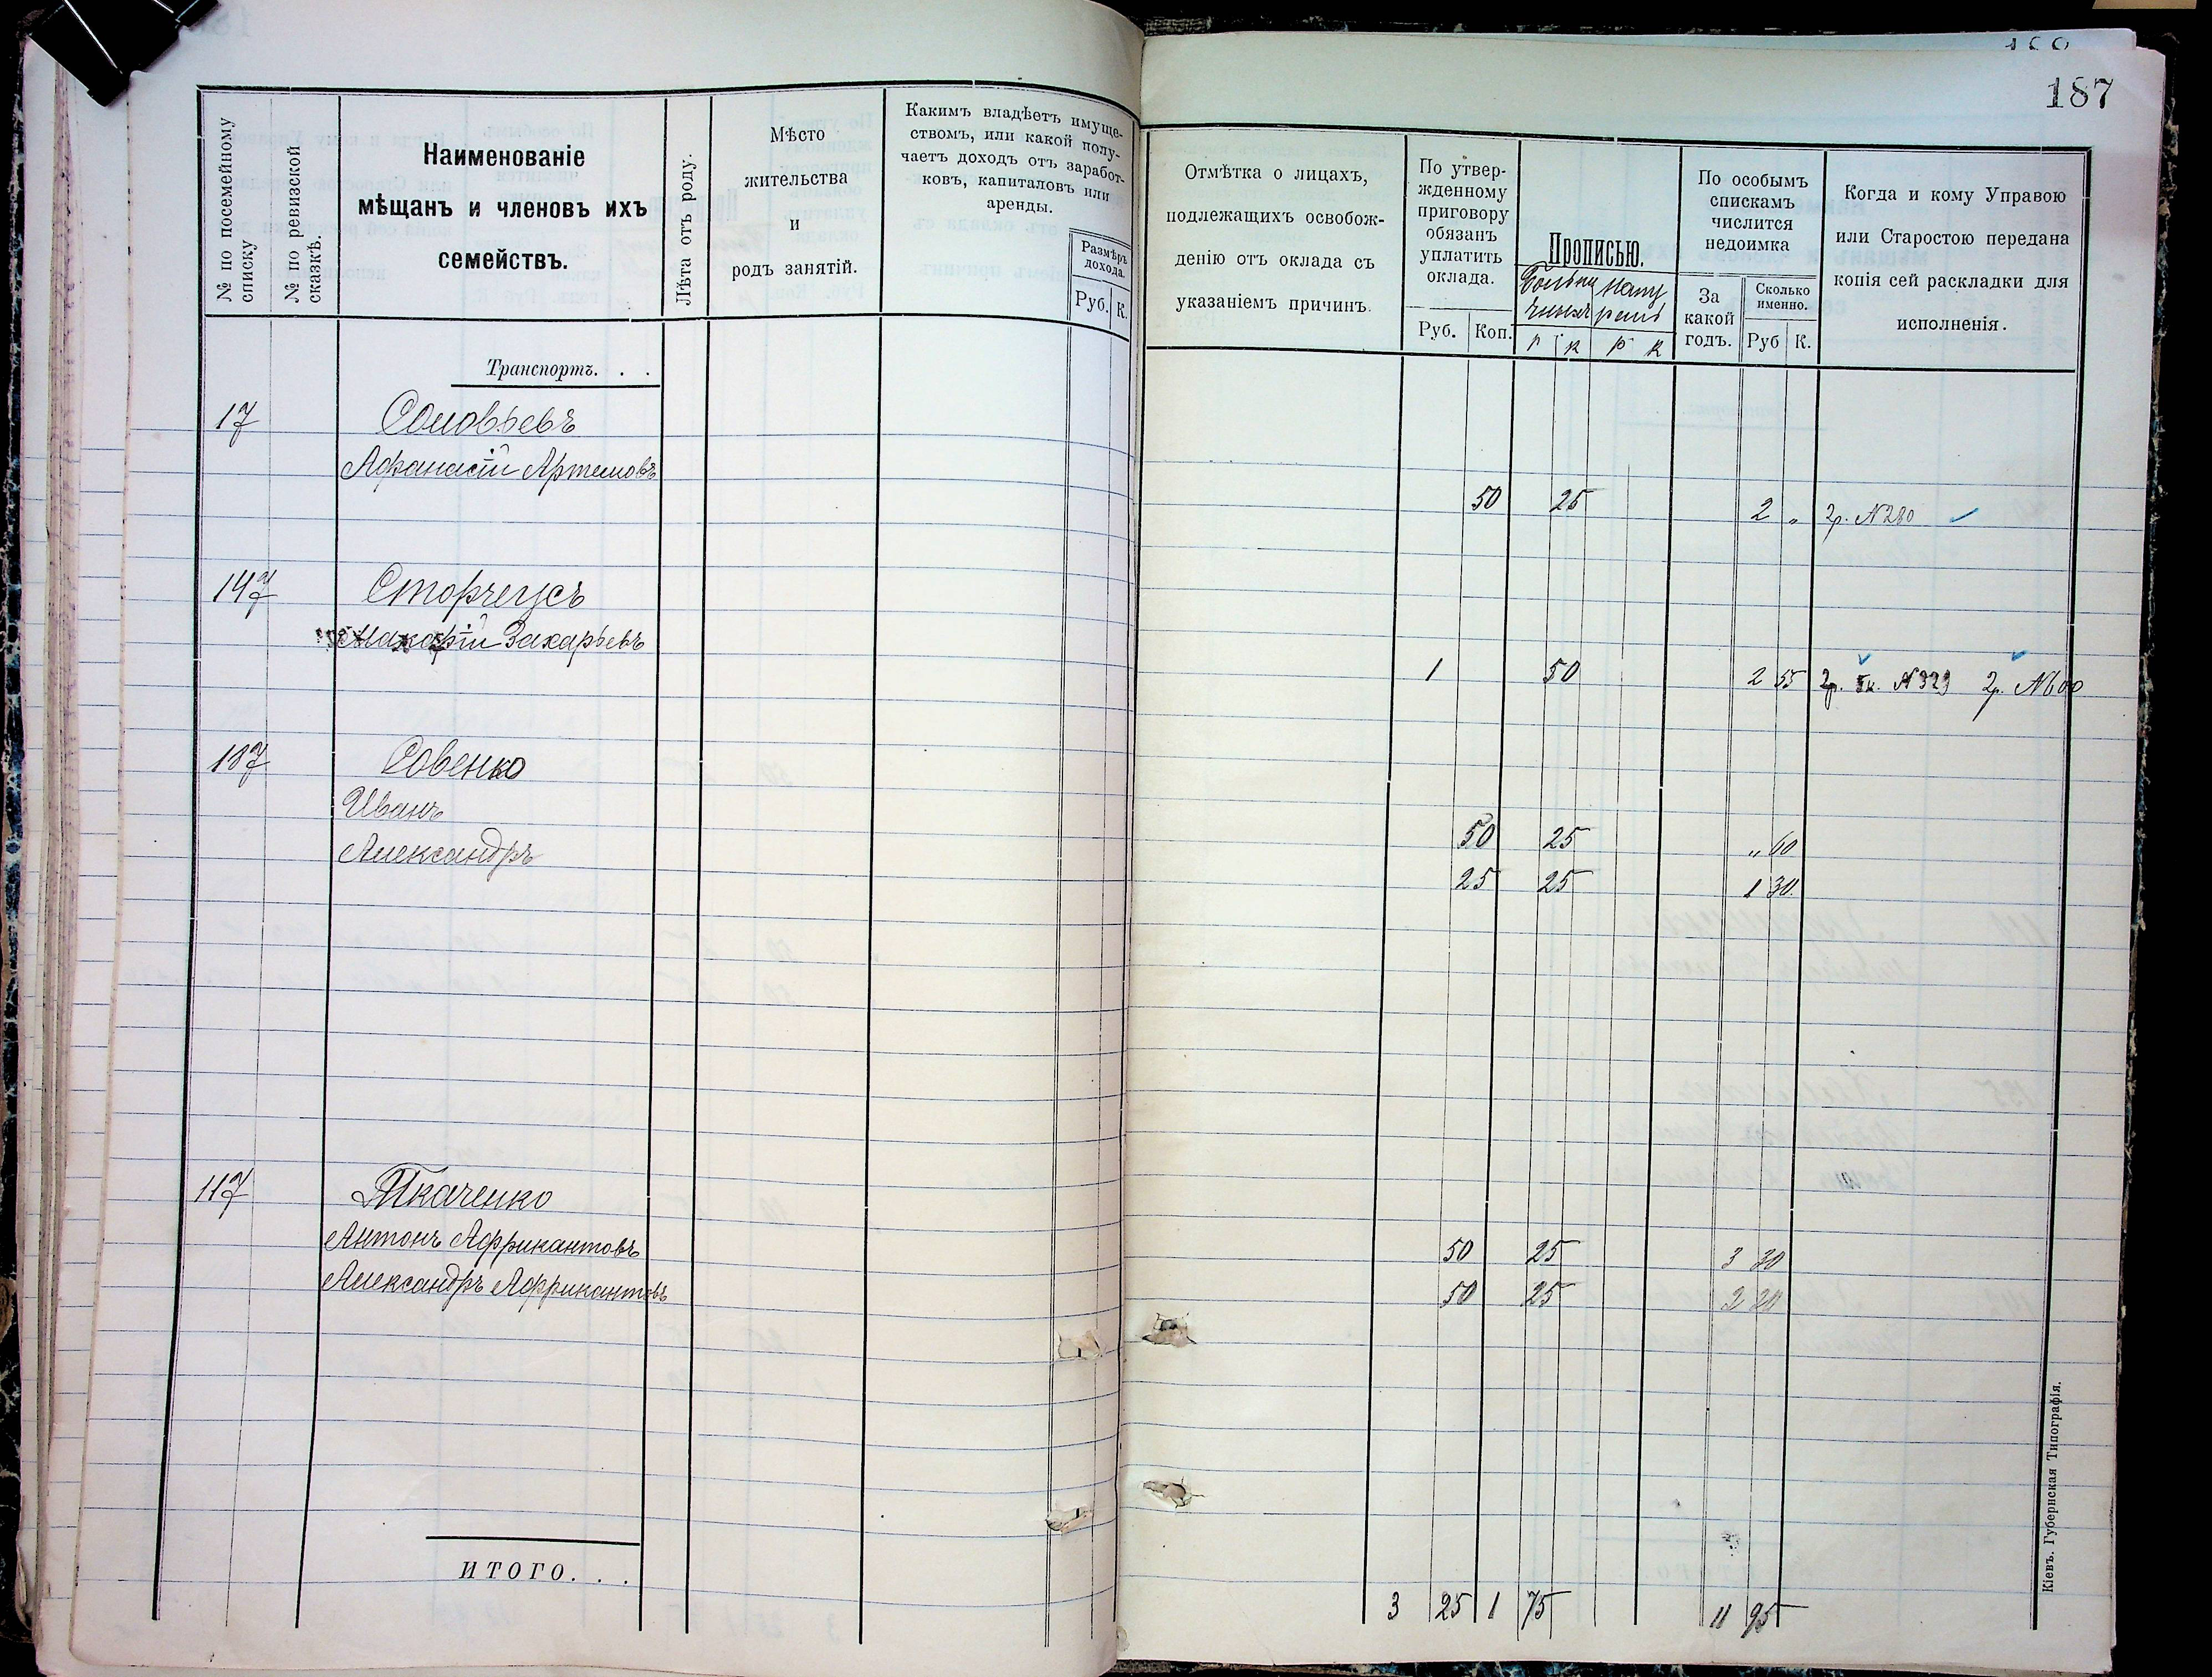 187
№ по посемейному списку
№ по ревизской сказкѣ.
Наименованіе
мѣщанъ и членовъ ихъ
семействъ.
Лѣта отъ роду.
Мѣсто
жительства
и
родъ занятій.
Какимъ владѣетъ имуще-
ствомъ, или какой полу-
чаетъ доходъ отъ заработ-
ковъ, капиталовъ или
аренды.
Размѣръ
дохода.
Руб. К.
Отмѣтка о лицахъ,
подлежащихъ освобож-
денію отъ оклада съ
указаніемъ причинъ.
По утвер-
жденному
приговору
обязанъ
уплатить
оклада.
Руб. Коп.
Прописью.
р к р к
По особымъ
спискамъ
числится
недоимка
За
какой
годъ.
Сколько
именно.
Руб К.
Когда и кому Управою
или Старостою передана
копія сей раскладки для
исполненія.
Транспортъ. . .
17 Соловьевъ
Афанасій Артемовъ
50 25 2 „ 2р. №280
147 Сторчеусъ
Макарій Захарьевъ
1 50 2 55 2р. 5к. №329 2р. №600
187 Совенко
Иванъ
50 25 „ 60
Александръ
25 25 1 30.
117 Ткаченко
Антонъ Аффрикантовъ
50 25 3 30
Александръ Аффрикантовъ
50 25 2 20
ИТОГО. . .
3 25 1 75 11 95
Кіевъ. Губернская Типографія.